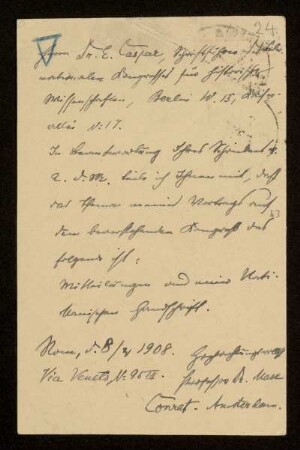 24
Herrn Dr. E. Caspar, Schriftführer d. Inter-
nationalen Kongresses für historische
Wissenschaften, Berlin W. 15, Kaiser-
allee N. 17.
In Beantwortung Ihres Schreibens v.
2. d. M. teile ich Ihnen mit, daß
das Thema meines Vortrags auf
dem bevorstehenden Kongreß das
folgende ist:
Mitteilungen aus einer Vati-
kanischen Handschrift.
Rom, d. 8/ 1908. Hochachtungsvoll
Via Veneto N. 95 Professor Dr. Max
Conrat. Amsterdam.